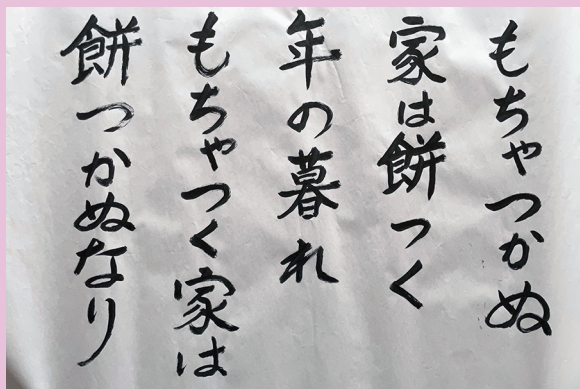 もちやつかぬ
家は餅つく
年の暮れ
もちやつく家は
餅つかぬなり